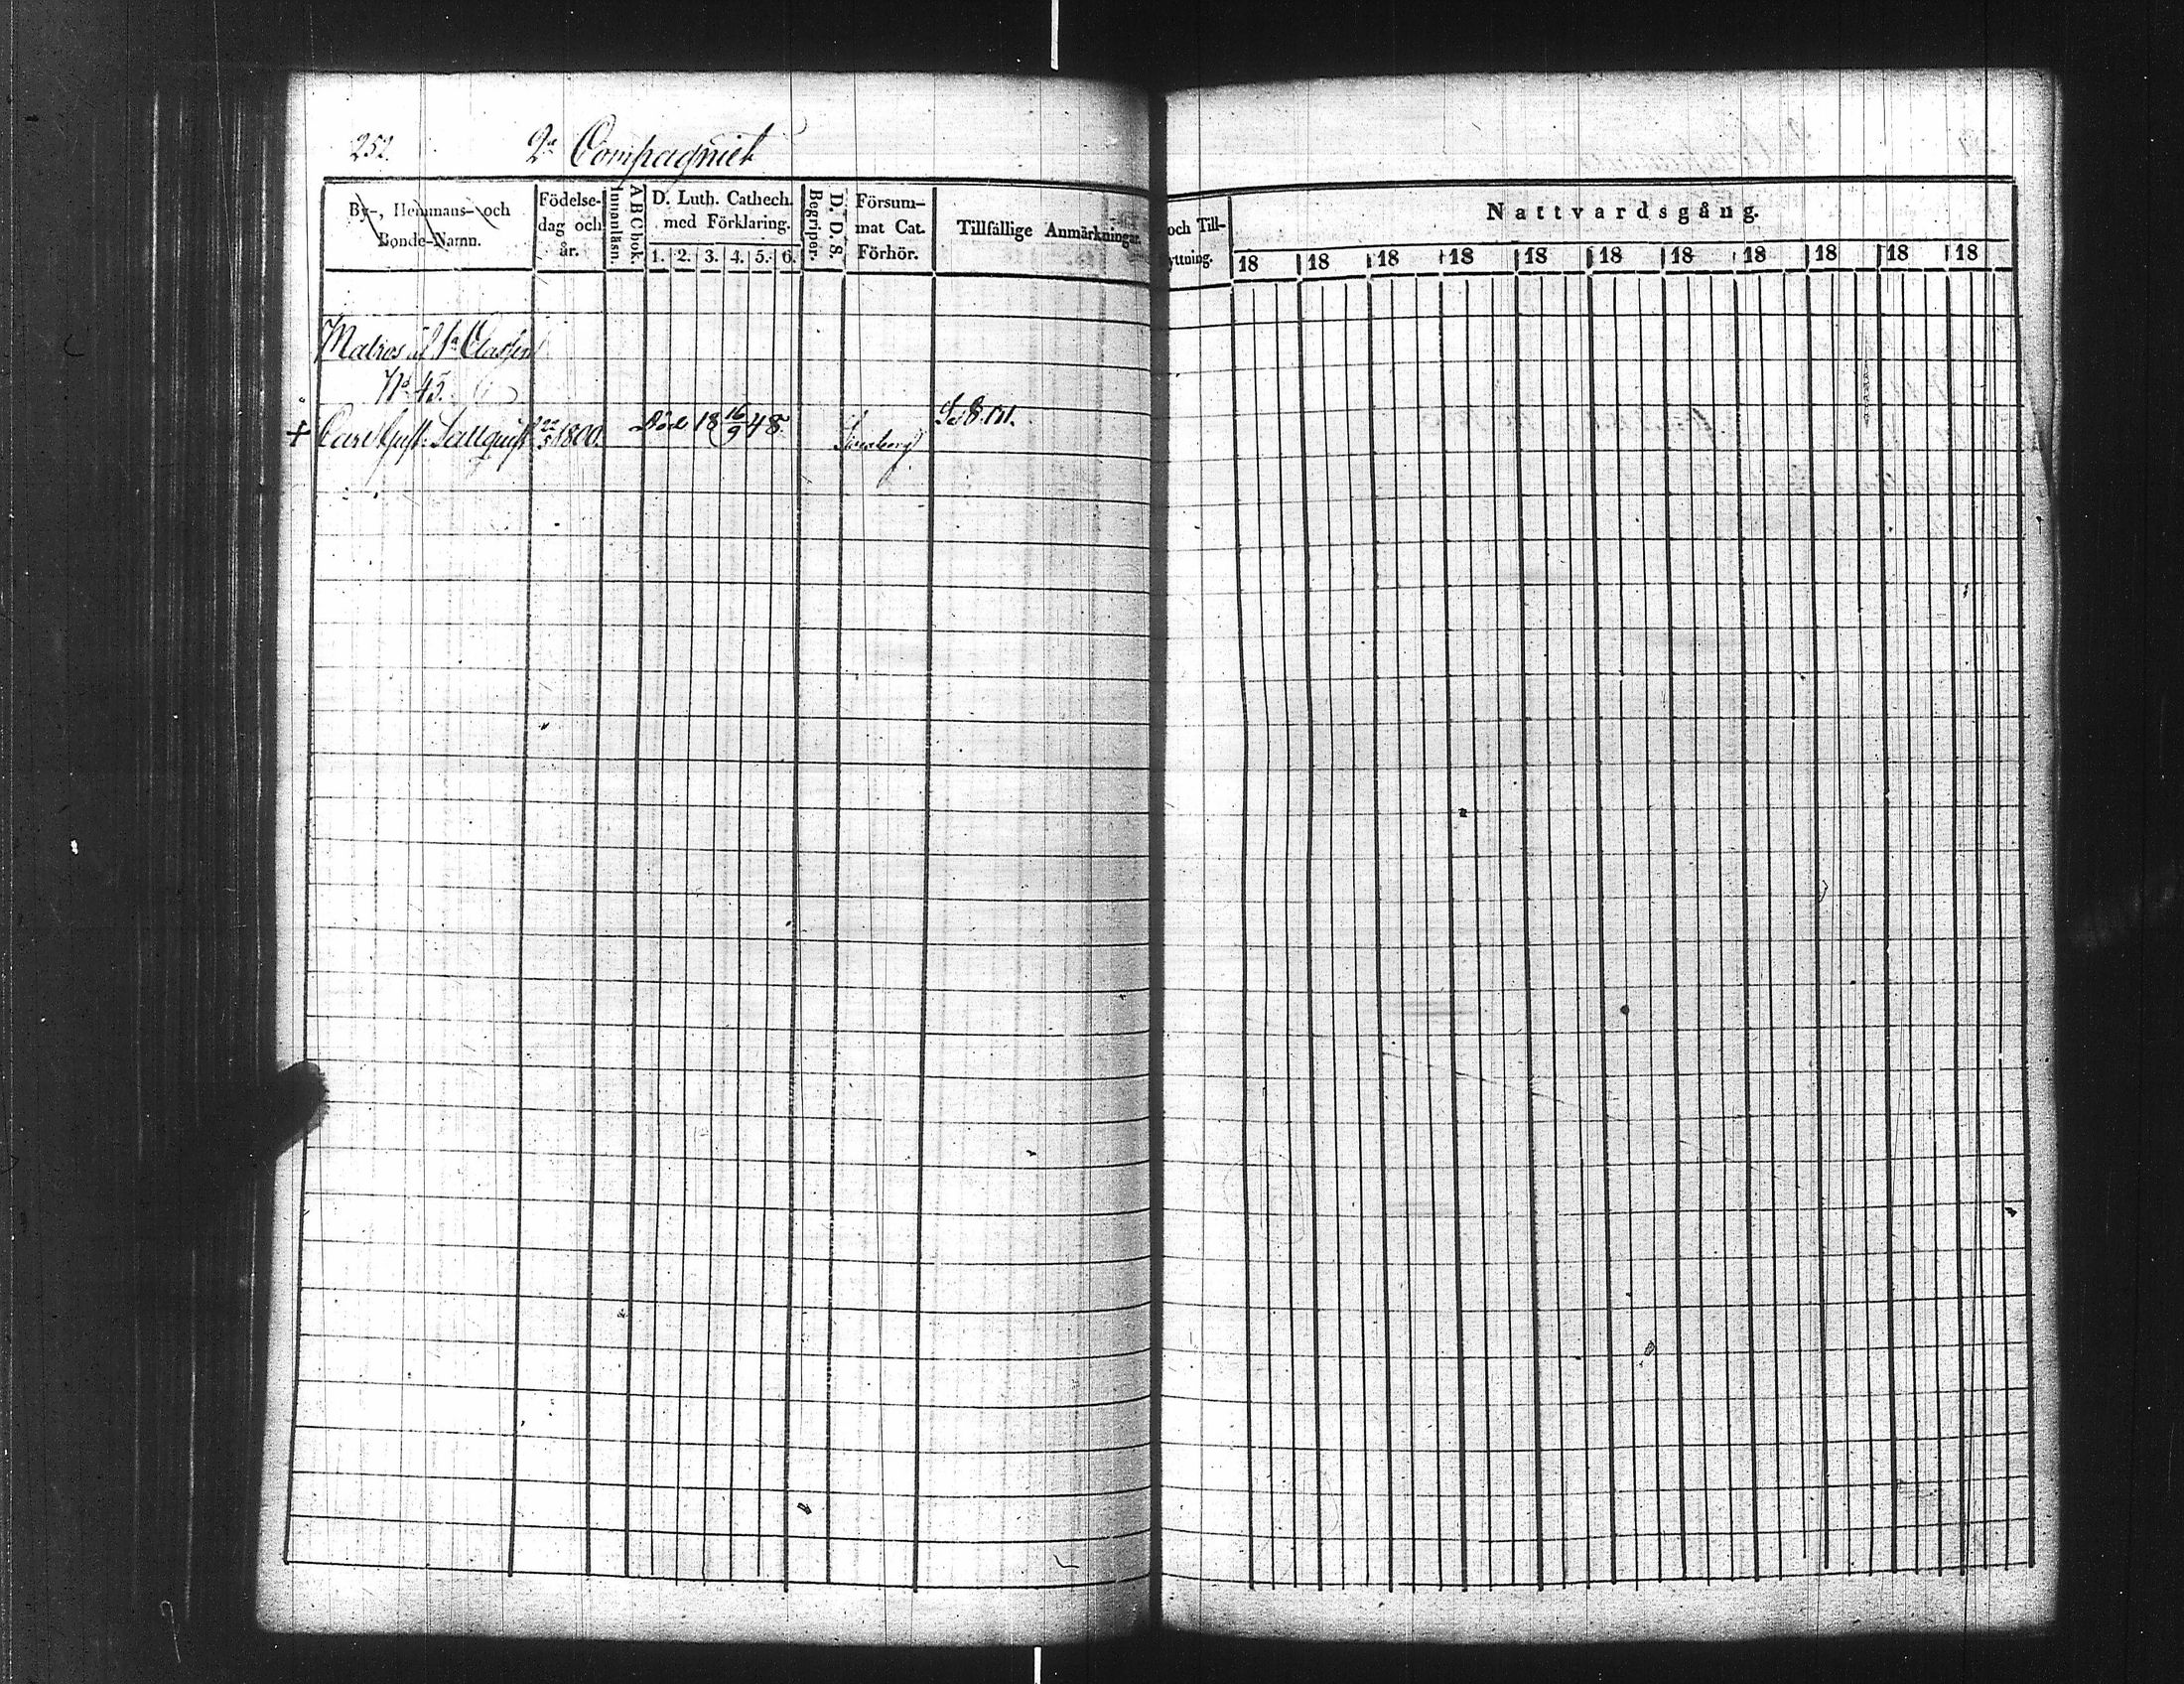 252. 2a Compagniet
By-, Hemmans- och Bonde-Namn.
Födelse-dag och år.
Innanläsn.
ABC bok.
D. Luth. Cathech. med Förklaring.
1. 2. 3. 4. 5. 6.
Begriper.
D. D. S.
Försum-mat Cat. Förhör.
Tillfällige Anmärkningar
och Till-
yttning.
Nattvardsgång.
18 18 18 18 18 18 18 18 18 18 18
Matros af 1a Classen
No 45.
+ Carl Gust. 22/5 1800. Död 18 16/9 48. Sveaborg